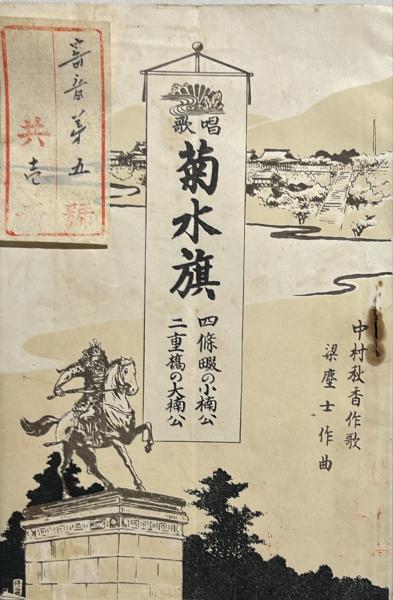 唱歌
菊水旗
四條畷の小楠公
二重橋の大楠公
中村秋香作歌
梁塵士作曲
寄音第五號
共壱